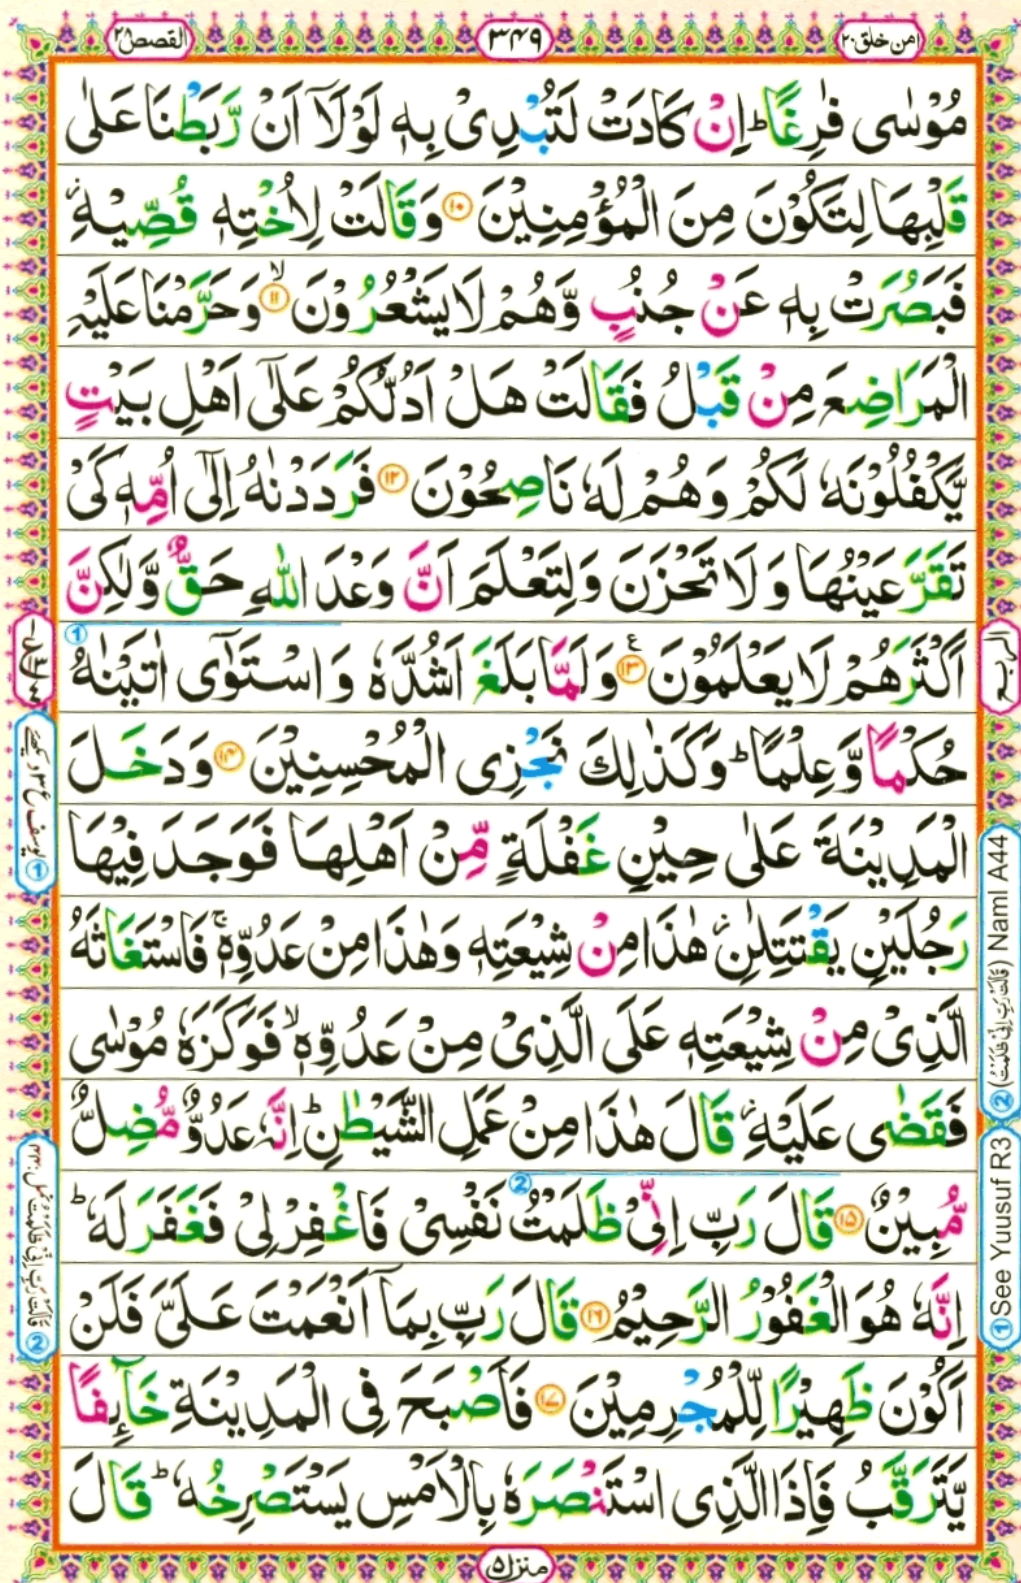 امن خلق ٢٠
٣٤٩
القصص ٢٨
مُوْسٰى فٰرِغًا ؕ اِنْ كَادَتْ لَتُبْدِىْ بِهٖ لَوْلَاۤ اَنْ رَّبَطْنَا عَلٰى
قَلْبِهَا لِتَكُوْنَ مِنَ الْمُؤْمِنِيْنَ ۝۱۰ وَقَالَتْ لِاُخْتِهٖ قُصِّيْهِ ؗ
فَبَصُرَتْ بِهٖ عَنْ جُنُبٍ وَّهُمْ لَا يَشْعُرُوْنَ ۙ۝۱۱ وَحَرَّمْنَا عَلَيْهِ
الْمَرَاضِعَ مِنْ قَبْلُ فَقَالَتْ هَلْ اَدُلُّكُمْ عَلٰٓى اَهْلِ بَيْتٍ
يَّكْفُلُوْنَهٗ لَكُمْ وَهُمْ لَهٗ نَاصِحُوْنَ ۝۱۲ فَرَدَدْنٰهُ اِلٰٓى اُمِّهٖ كَىْ
تَقَرَّ عَيْنُهَا وَلَا تَحْزَنَ وَلِتَعْلَمَ اَنَّ وَعْدَ اللّٰهِ حَقٌّ وَّلٰكِنَّ
اَكْثَرَهُمْ لَا يَعْلَمُوْنَ ۝۱۳ ع وَلَمَّا بَلَغَ اَشُدَّهٗ وَاسْتَوٰٓى اٰتَيْنٰهُ
حُكْمًا وَّعِلْمًا ؕ وَكَذٰلِكَ نَجْزِى الْمُحْسِنِيْنَ ۝۱۴ وَدَخَلَ
الْمَدِيْنَةَ عَلٰى حِيْنِ غَفْلَةٍ مِّنْ اَهْلِهَا فَوَجَدَ فِيْهَا
رَجُلَيْنِ يَقْتَتِلٰنِ ؗ هٰذَا مِنْ شِيْعَتِهٖ وَهٰذَا مِنْ عَدُوِّهٖ ۚ فَاسْتَغَاثَهُ
الَّذِىْ مِنْ شِيْعَتِهٖ عَلَى الَّذِىْ مِنْ عَدُوِّهٖ ۙ فَوَكَزَهٗ مُوْسٰى
فَقَضٰى عَلَيْهِ ؗ قَالَ هٰذَا مِنْ عَمَلِ الشَّيْطٰنِ ؕ اِنَّهٗ عَدُوٌّ مُّضِلٌّ
مُّبِيْنٌ ۝۱۵ قَالَ رَبِّ اِنِّىْ ظَلَمْتُ نَفْسِىْ فَاغْفِرْ لِىْ فَغَفَرَ لَهٗ ؕ
اِنَّهٗ هُوَ الْغَفُوْرُ الرَّحِيْمُ ۝۱۶ قَالَ رَبِّ بِمَاۤ اَنْعَمْتَ عَلَىَّ فَلَنْ
اَكُوْنَ ظَهِيْرًا لِّلْمُجْرِمِيْنَ ۝۱۷ فَاَصْبَحَ فِى الْمَدِيْنَةِ خَآٮِٕفًا
يَّتَرَقَّبُ فَاِذَا الَّذِى اسْتَنْصَرَهٗ بِالْاَمْسِ يَسْتَصْرِخُهٗ ؕ قَالَ
منزل ٥
الربع
② (قَالَتْ رَبِّ اِنِّىْ ظَلَمْتُ) Naml A44
① See Yuusuf R3
① یوسف ع ٣ دیکھئے